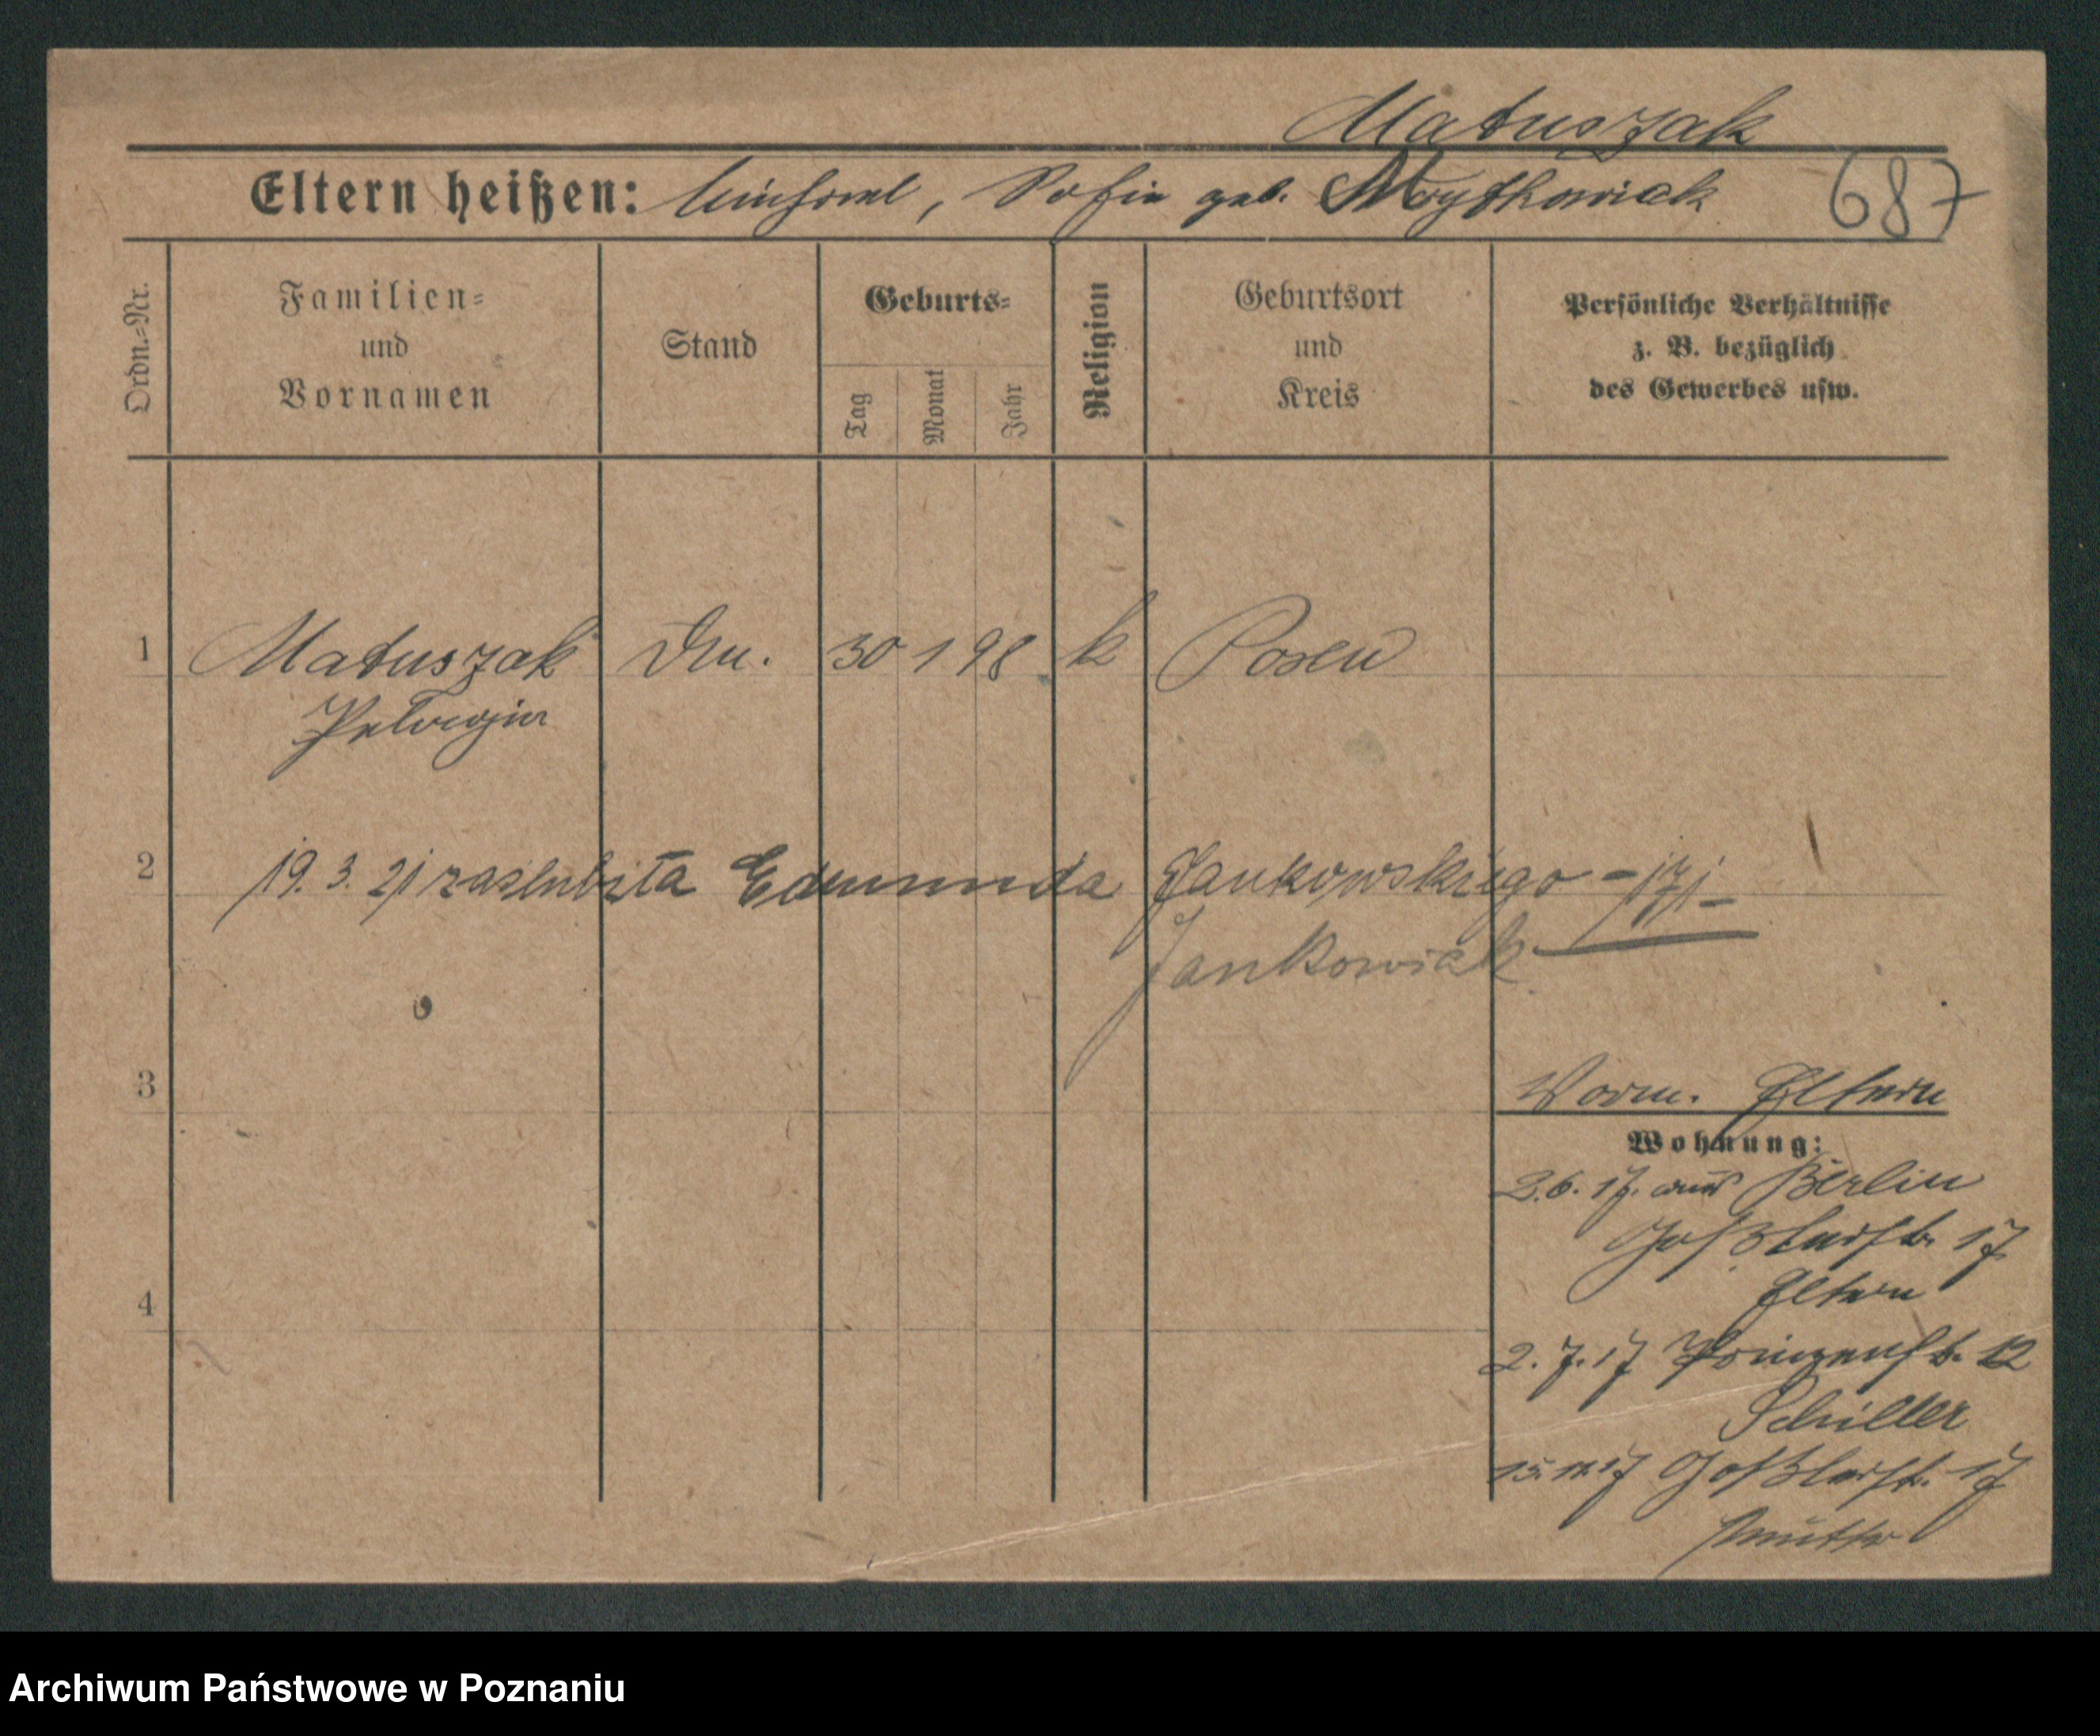 Matuszak
Eltern heißen: Michael, Sofie geb. 687
Ordn.-Nr.
Familien-
und
Vornamen
Stand
Geburts-
Tag
Monat
Jahr
Religion
Geburtsort
und
Kreis
Persönliche Verhältnisse
z. B. bezüglich
des Gewerbes usw.
1 Matuszak 30 1 98 k Posen
Pelagia
2 19. 3. 21 zaslubiła Edmunda Jankowskiego
Jankowiak
3
Eltern
Wohnung:
2.6.17. aus Berlin
17
Eltern
4
2.7.17 Prinzenstr. 12
Schiller
17
Mutter
Archiwum Państwowe w Poznaniu